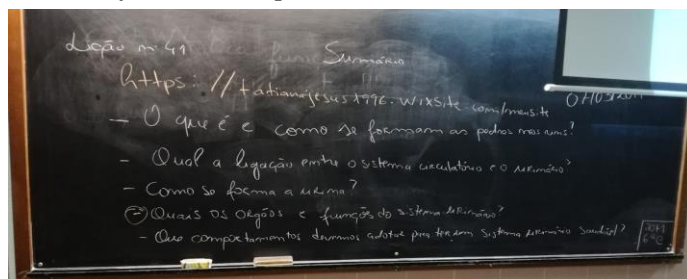 Lição nº 41
Sumário
https://tatianajesus1996.wixsite.com/meusite
- O que é e como se formam as pedras nos rins?
- Qual a ligação entre o sistema circulatório e o urinário?
- Como se forma a urina?
- Quais os orgãos e funções do sistema urinário?
- Que comportamentos devemos adotar para ter um sistema urinário saudável?